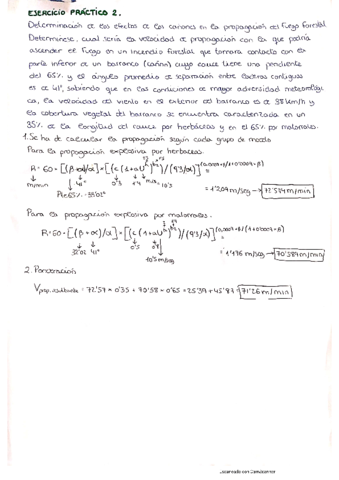 EJERCICIO PRÁCTICO 2.
Determinación de los efectos de los cañones en la propagación del fuego forestal
Determínese, cual sería la velocidad de propagación con la que podría
ascender el fuego en un incendio forestal que tomara contacto con la
parte inferior de un barranco (cañón) cuyo cauce tiene una pendiente
del 65% y el ángulo promedio de separación entre laderas contiguas
es de 41°, sabiendo que en las condiciones de mayor adversidad meteorológi
ca, la velocidad del viento en el exterior del barranco es de 38km/h y
la cobertura vegetal del barranco se encuentra caracterizada en un
35% de la longitud del cauce por herbáceas y en el 65% por matorrales.
1. Se ha de calcular la propagación según cada grupo de modelo
Para la propagación explosiva por herbáceas.
R = 60 = [(β+α)/α] × [(c(1+aU
m/min 41° 0'5 10'5
= 1'209 m/seg → 72'57 m/min
Para la propagación explosiva por matorrales.
R = 60 = [(β+α)/α] × [(c(1+aU
33'02 41° 0'5
10'5 m/seg
= 1'176 m/seg → 70'58 m/min
2. Ponderación
= 72'57 × 0'35 + 70'58 × 0'65 = 25'39 + 45'87 = 71'26 m/min